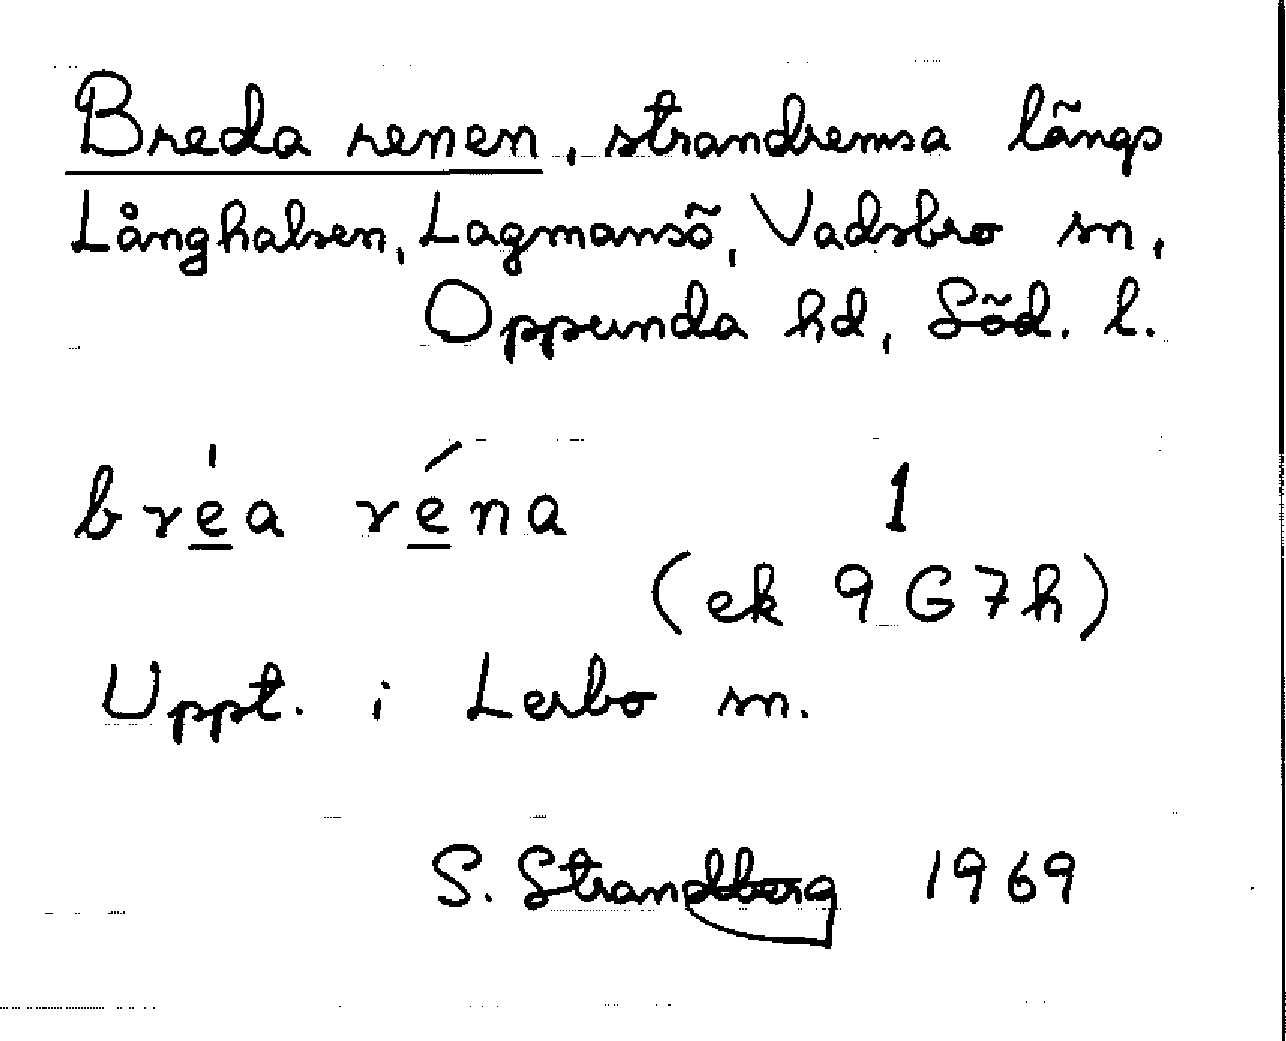 Breda renen, strandremsa längs
Långhalsen, Lagmansö, Vadsbro sn,
Oppunda hd, Söd. l.
bre̲̍a ré̲na 1
(ek 9G7h)
Uppt. i Lerbo sn.
S. Strandberg 1969